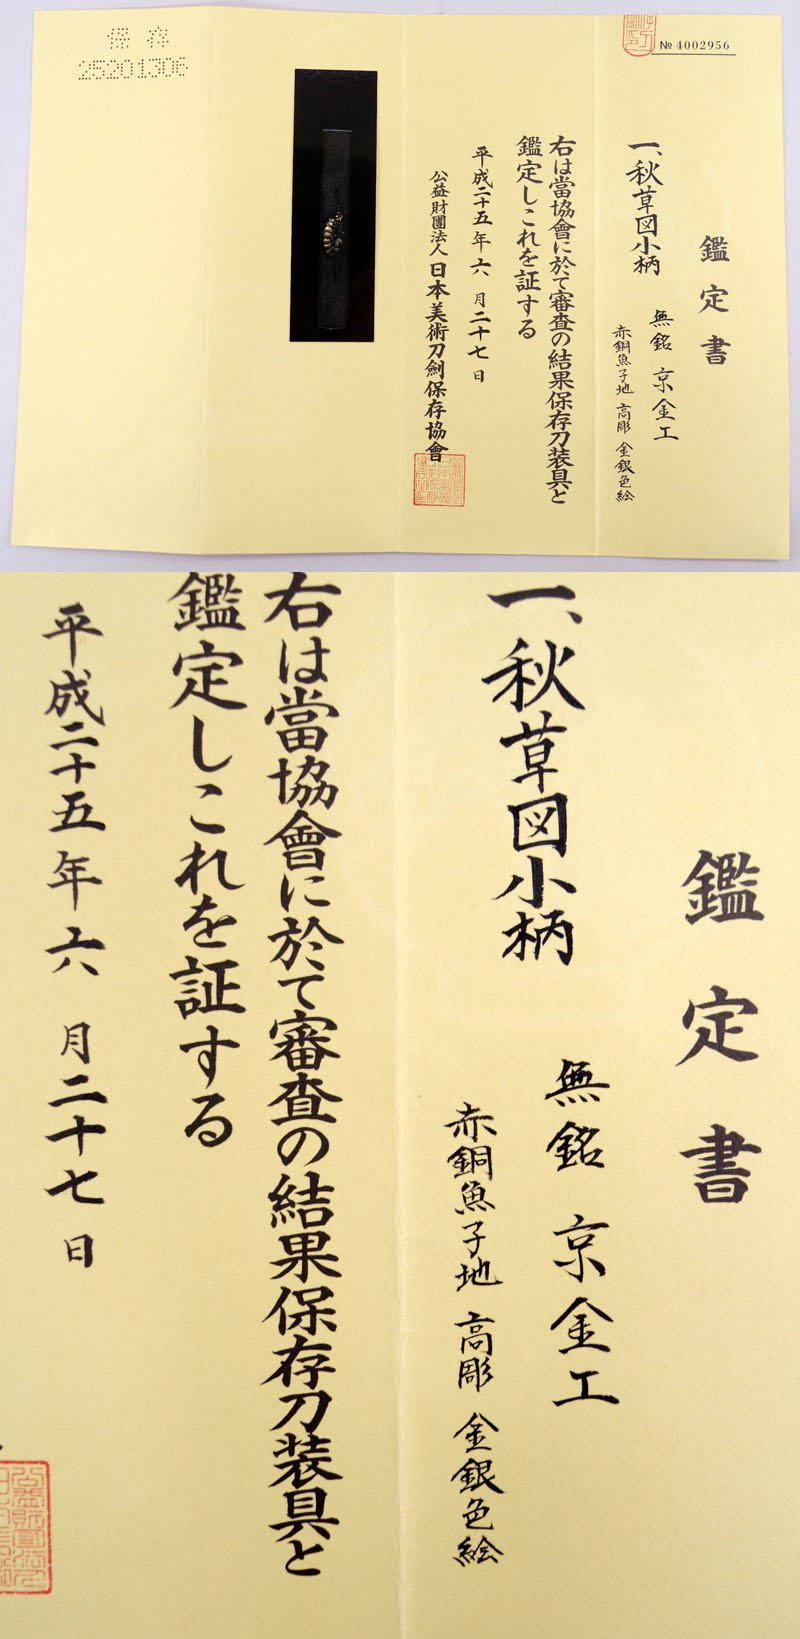 保存
25201306
№ 4002956
鑑定書
一、秋草図小柄
無銘 京金工
赤銅魚子地 高彫 金銀色絵
右は當協會に於て審査の結果保存刀装具と
鑑定しこれを証する
平成二十五年六月二十七日
公益財團法人 日本美術刀劍保存協會
鑑定書
一、秋草図小柄
無銘 京金工
赤銅魚子地 高彫 金銀色絵
右は當協會に於て審査の結果保存刀装具と
鑑定しこれを証する
平成二十五年六月二十七日